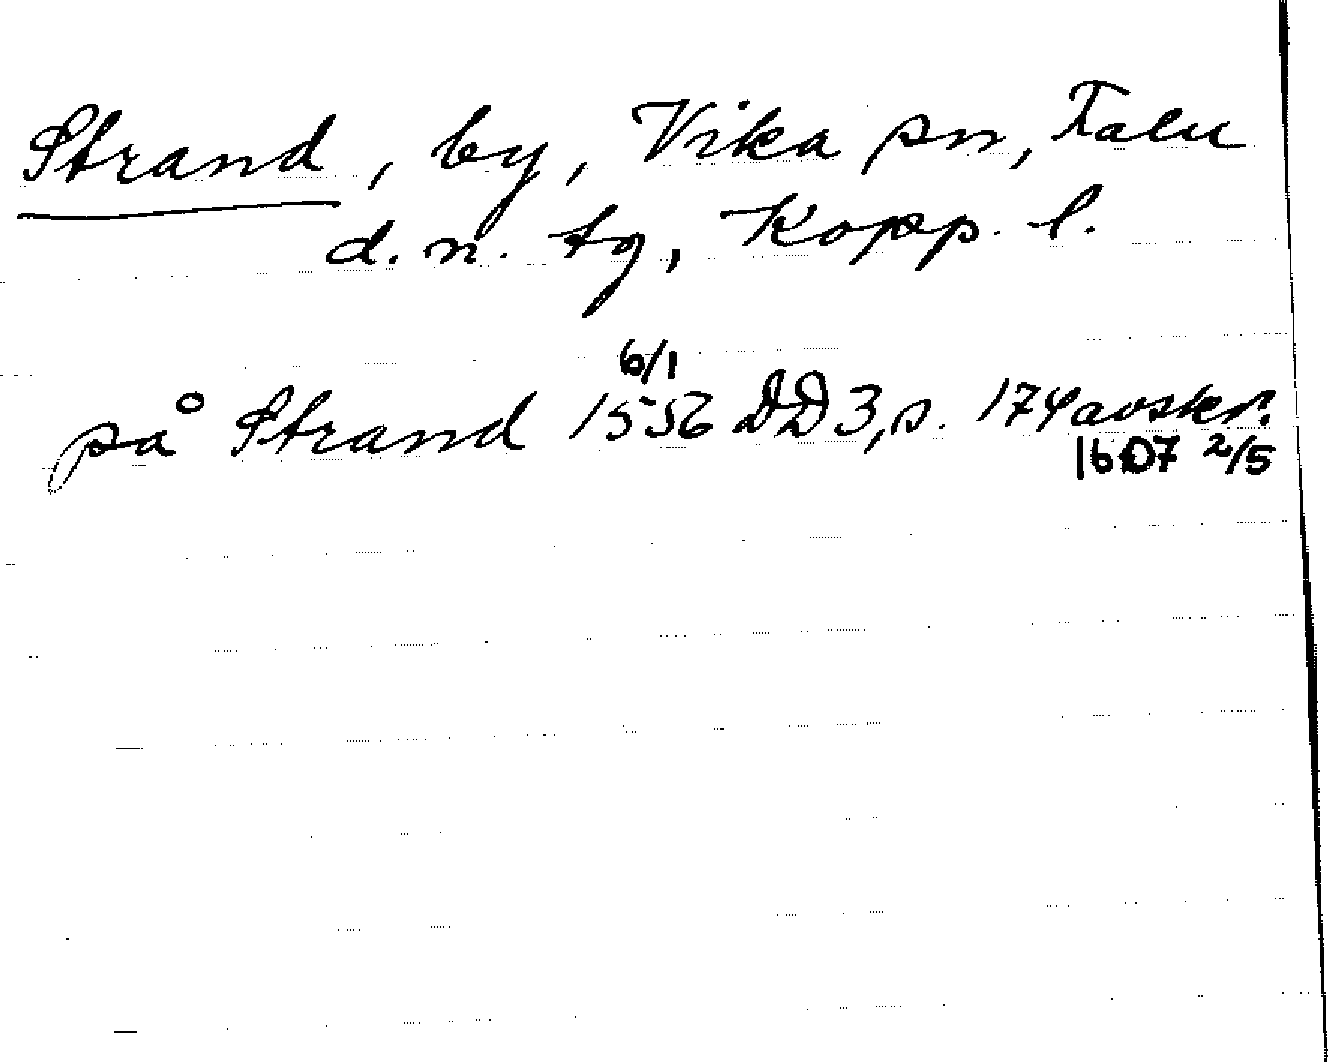 Strand, by, Vika sn, Falu
d.n. tg, Kopp. l.
6/1
på Strand 1556 DD3, s. 174 avskr.
1607 2/5